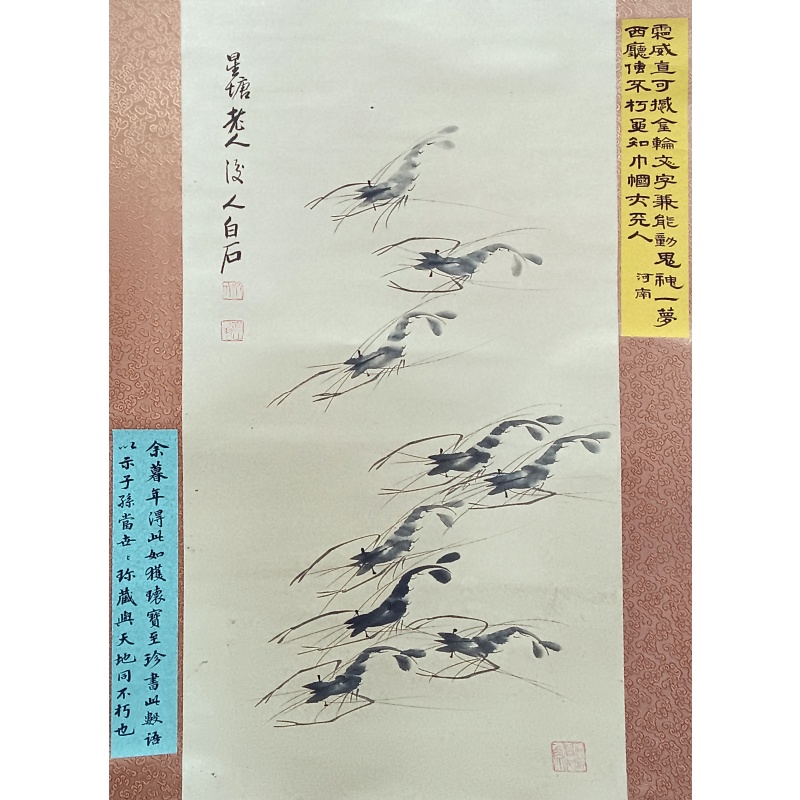 靈威直可撼金輪文字兼能動鬼神一夢
西廳傳不朽虽知巾幗大死人
河南
星塘老人後人白石
余暮年得此如獲瓌寶至珍書此數語
以示子孫當世〻珍藏與天地同不朽也